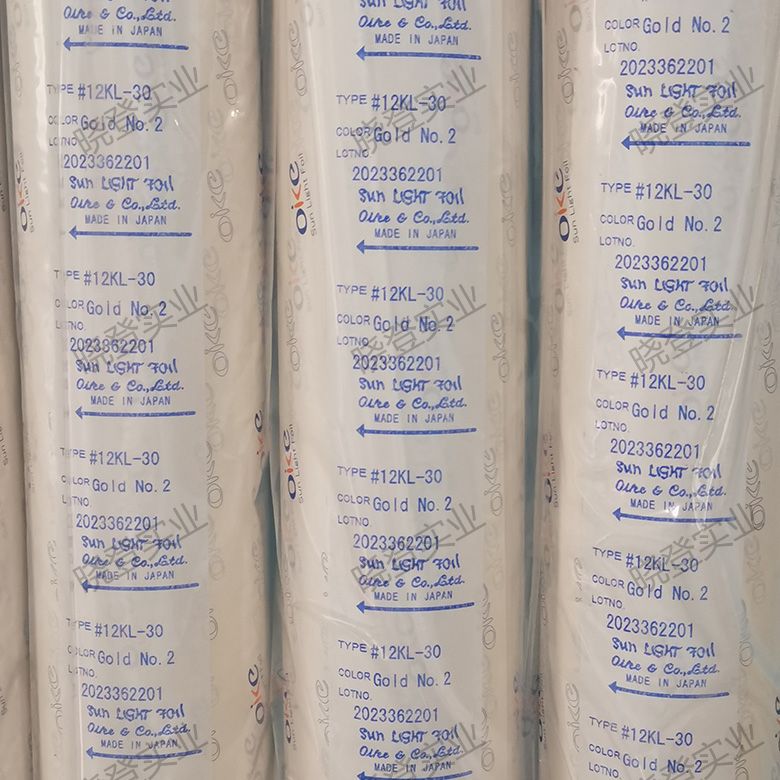 Sun LIGHT Foil
Oike & Co.,Ltd.
MADE IN JAPAN
TYPE #12KL-30
COLOR Gold No.2
LOTNO.
2023362201
Sun LIGHT Foil
Oike & Co.,Ltd.
MADE IN JAPAN
TYPE #12KL-30
COLOR Gold No.2
LOTNO.
2023362201
Sun LIGHT Foil
Oike & Co.,Ltd.
MADE IN JAPAN
TYPE #12KL-30
COLOR Gold No.2
LOTNO.
2023362201
Sun LIGHT Foil
Oike & Co.,Ltd.
MADE IN JAPAN
TYPE #12KL-30
COLOR Gold No.2
LOTNO.
2023362201
Sun LIGHT Foil
Oike & Co.,Ltd.
MADE IN JAPAN
Oike
Sun Light Foil
Oike
Sun LIGHT Foil
Oike & Co.,Ltd.
MADE IN JAPAN
TYPE #12KL-30
COLOR Gold No.2
LOTNO.
2023362201
Sun LIGHT Foil
Oike & Co.,Ltd.
MADE IN JAPAN
TYPE #12KL-30
COLOR Gold No.2
LOTNO.
2023362201
Sun LIGHT Foil
Oike & Co.,Ltd.
MADE IN JAPAN
TYPE #12KL-30
COLOR Gold No.2
LOTNO.
2023362201
Sun LIGHT Foil
Oike & Co.,Ltd.
MADE IN JAPAN
TYPE #12KL-30
COLOR Gold No.2
LOTNO.
2023362201
Sun LIGHT Foil
Oike & Co.,Ltd.
MADE IN JAPAN
Oike
Sun Light Foil
COLOR Gold No.2
LOTNO.
2023362201
Sun LIGHT Foil
Oike & Co.,Ltd.
MADE IN JAPAN
TYPE #12KL-30
COLOR Gold No.2
LOTNO.
2023362201
Sun LIGHT Foil
Oike & Co.,Ltd.
MADE IN JAPAN
TYPE #12KL-30
COLOR Gold No.2
LOTNO.
2023362201
Sun LIGHT Foil
Oike & Co.,Ltd.
MADE IN JAPAN
TYPE #12KL-30
COLOR Gold No.2
LOTNO.
2023362201
Sun LIGHT Foil
Oike & Co.,Ltd.
MADE IN JAPAN
TYPE #12KL-30
COLOR Gold No.2
晓登实业
晓登实业
晓登实业
晓登实业
晓登实业
晓登实业
晓登实业
晓登实业
晓登实业
晓登实业
晓登实业
晓登实业